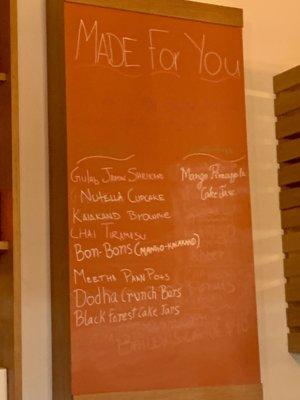 Made For You
Gulab Jamun Shrikand
Nutella Cupcake
Kalakand Brownie
Chai Tiramisu
Bon-Bons (Mango-Kalakand)
Meetha Paan Pots
Dodha Crunch Bars
Black Forest Cake Jars
Mango Pineapple
Cake Jar